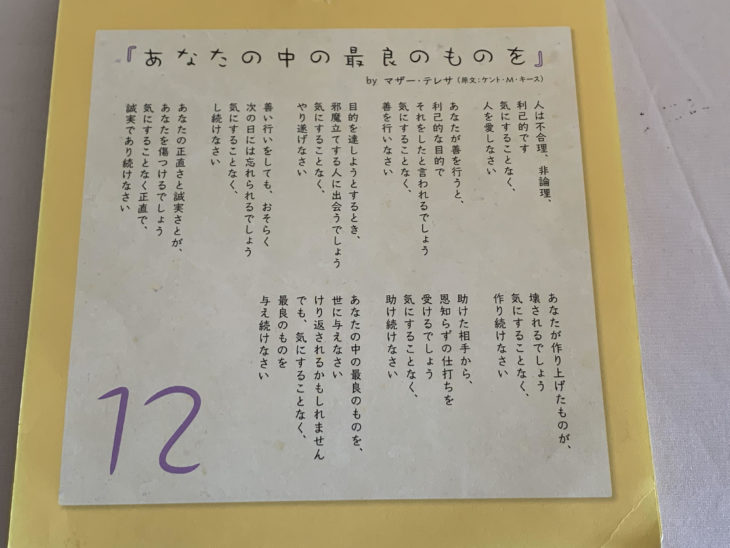 『あなたの中の最良のものを』
by マザー・テレサ（原文：ケント・M・キース）
人は不合理、非論理、
利己的です
気にすることなく、
人を愛しなさい
あなたが善を行うと、
利己的な目的で
それをしたと言われるでしょう
気にすることなく、
善を行いなさい
目的を達しようとするとき、
邪魔立てする人に出会うでしょう
気にすることなく、
やり遂げなさい
善い行いをしても、おそらく
次の日には忘れられるでしょう
気にすることなく、
し続けなさい
あなたの正直さと誠実さとが、
あなたを傷つけるでしょう
気にすることなく正直で、
誠実であり続けなさい
あなたが作り上げたものが、
壊されるでしょう
気にすることなく、
作り続けなさい
助けた相手から、
恩知らずの仕打ちを
受けるでしょう
気にすることなく、
助け続けなさい
あなたの中の最良のものを、
世に与えなさい
けり返されるかもしれません
でも、気にすることなく、
最良のものを
与え続けなさい
12